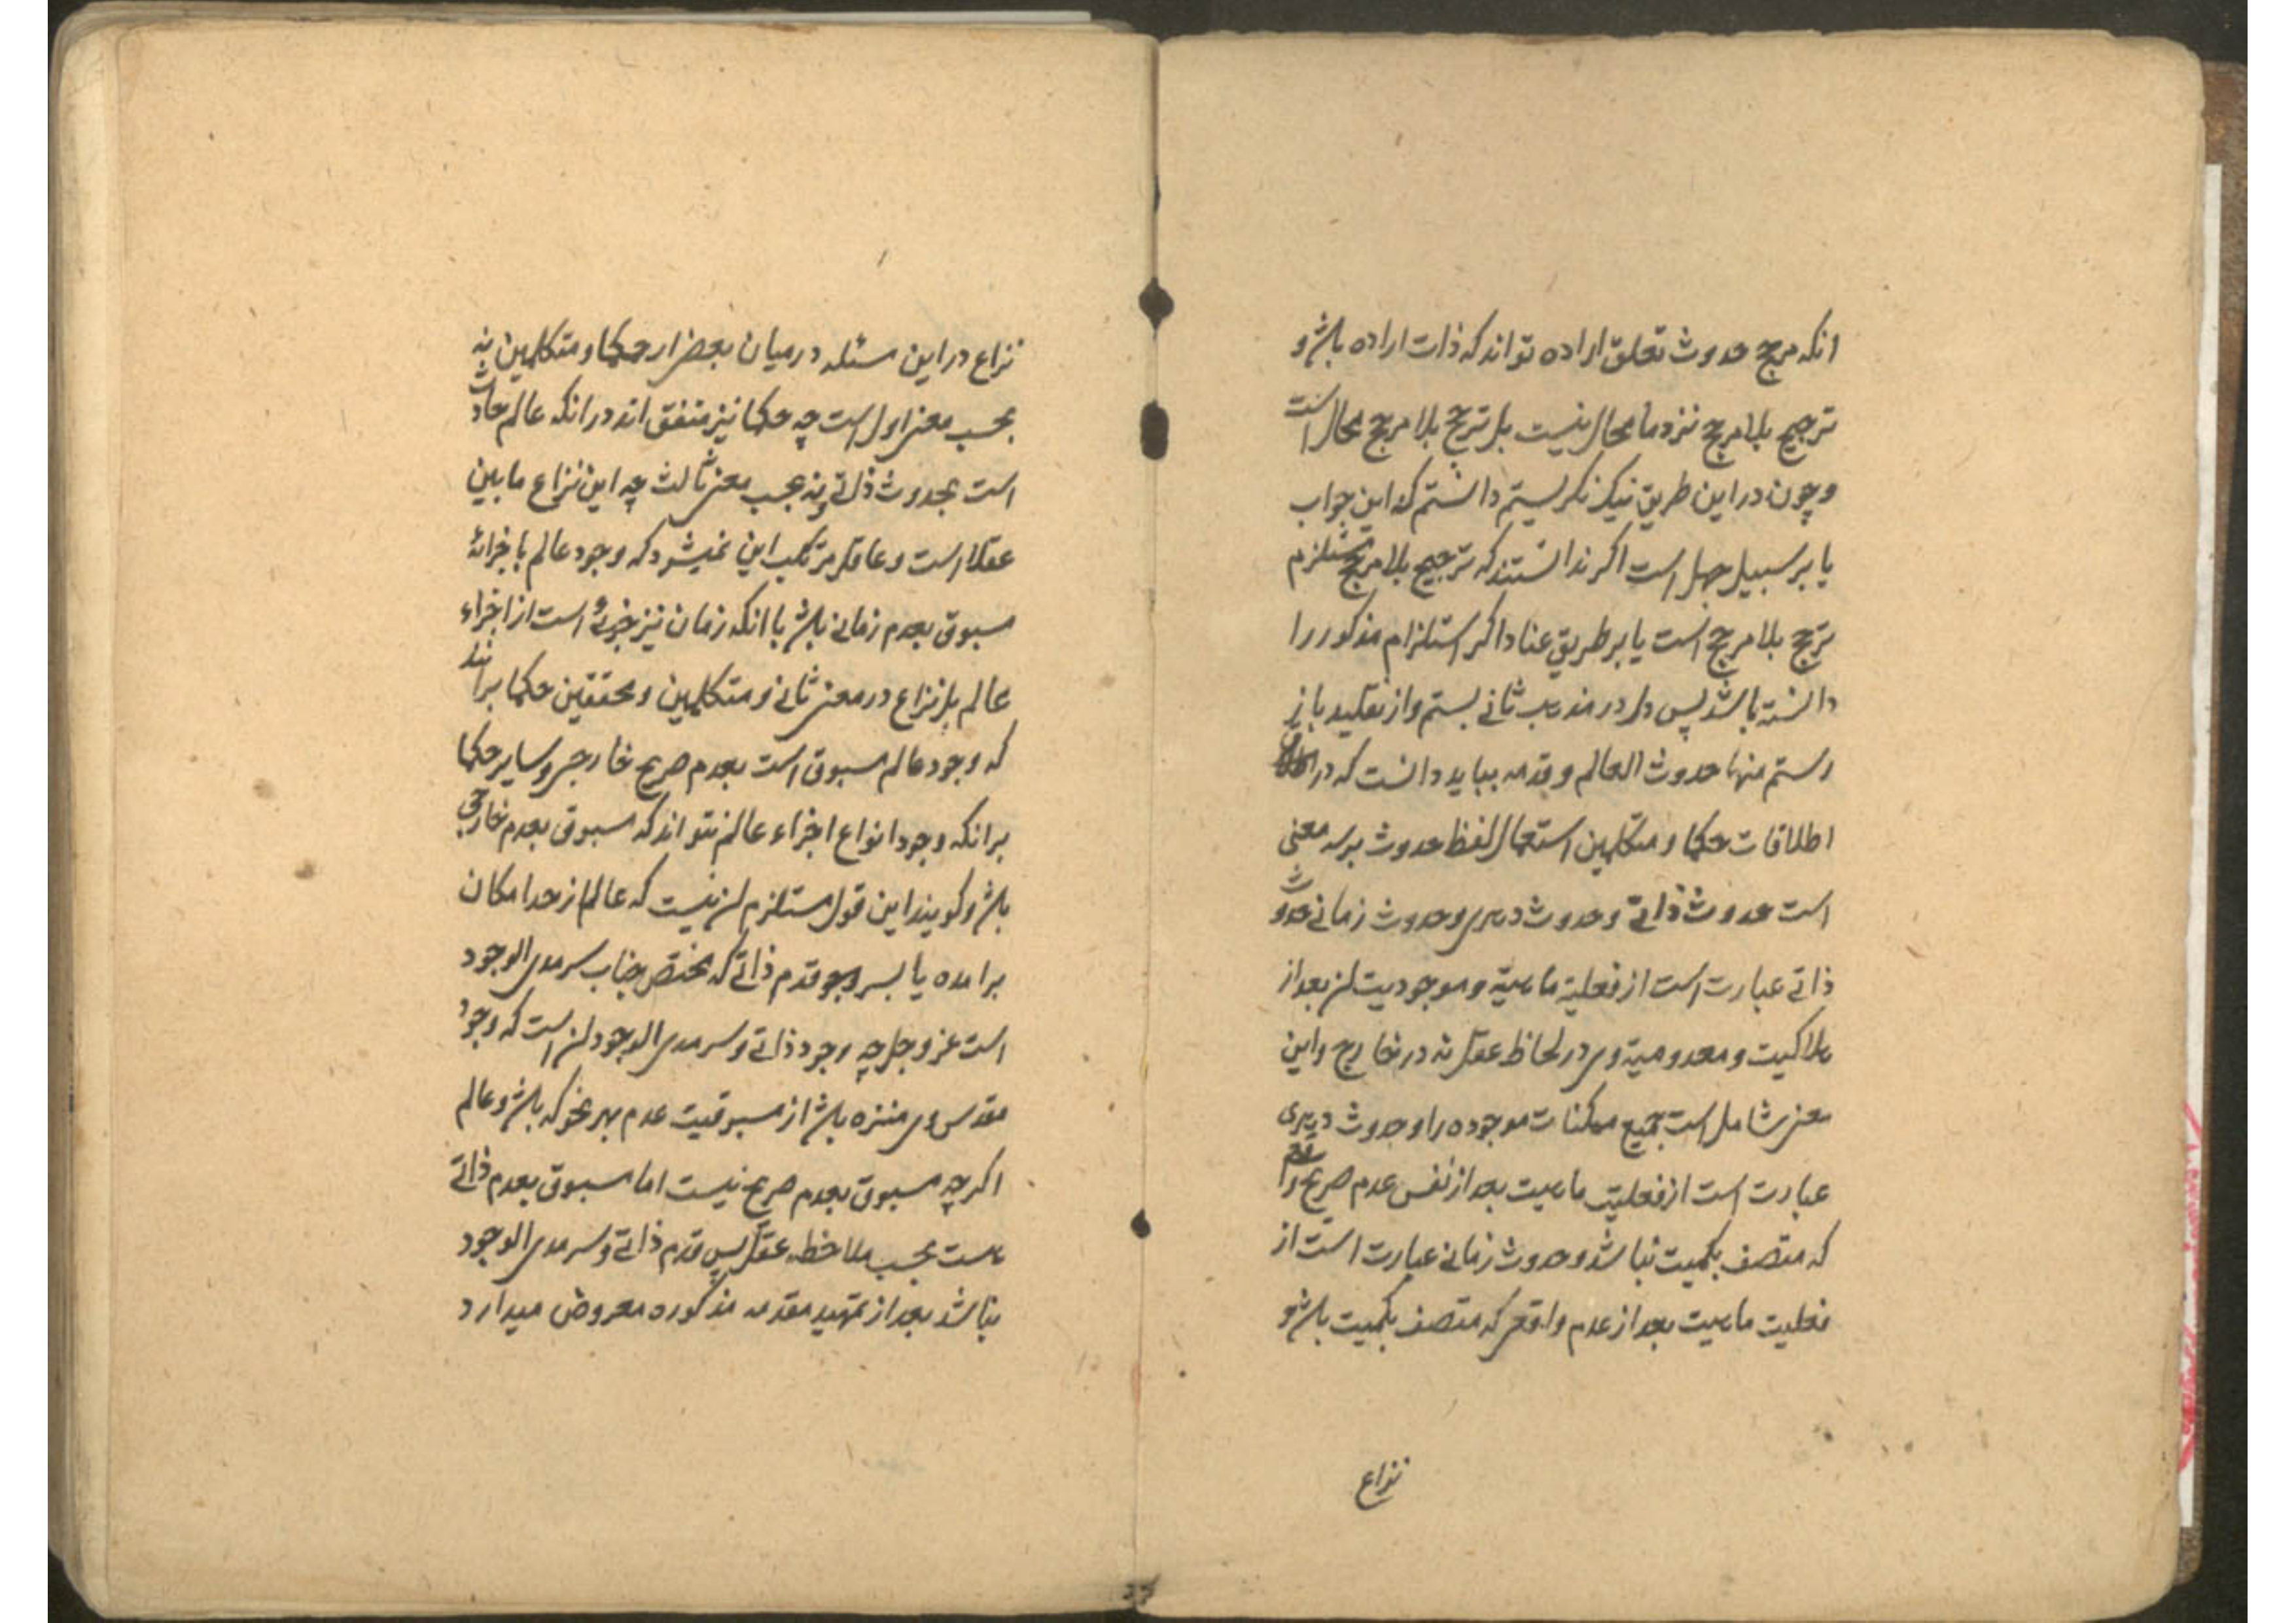 انکه مرجح حدوث تعلق اراده تواند که ذات اراده باشد و
ترجیح بلا مرجح نزد ما محال نیست بل ترجح بلا مرجح محال است
و چون در این طریق نیک نکریستم دانستم که این جواب
یا بر سبیل جهل است اکر ندانستند که ترجیح بلا مرجح مستلزم
ترجح بلا مرجح است یا بر طریق عناد اکر استلزام مذکور را
دانسته باشند پس دل در مذهب ثانی بستم و از تقلید باز
رستم منها حدوث العالم و قدمه بباید دانست که در
اطلاقات حکما و متکلمین استعمال لفظ حدوث بر سه معنی
است حدوث ذاتی و حدوث دهری و حدوث زمانی حدوث
ذاتی عبارت است از فعلیة ماهیة و موجودیت ان بعد از
هلاکیت و معدومیة وی در لحاظ عقل نه در خارج و این
معنی شامل است جمیع ممکنات موجوده را و حدوث دهری
عبارت است از فعلیت ماهیت بعد از نفس عدم صریح واقعی
که متصف بکمیت نباشد و حدوث زمانی عبارت است از
فعلیت ماهیت بعد از عدم واقعی که متصف بکمیت باشد و
نزاع
نزاع در این مسئله در میان بعضی از حکما و متکلمین نه
بحسب معنی اول است چه حکما نیز متفق اند در انکه عالم حادث
است بحدوث ذاتی و نه بحسب معنی ثالث چه این نزاع مابین
عقلا است و عاقل مرتکب این نمیشود که وجود عالم باجزائه
مسبوق بعدم زمانی باشد با انکه زمان نیز جزوی است از اجزاء
عالم بل نزاع در معنی ثانی و متکلمین و محققین حکما برانند
که وجود عالم مسبوق است بعدم صریح خارجی و سایر حکما
برانکه وجود انواع اجزاء عالم نتواند که مسبوق بعدم خارجی
باشد و کویند این قول مستلزم ان نیست که عالم از حد امکان
برامده یا بسر قدم ذاتی که مختص بجناب سرمدی الوجود
است عز و جل چه وجود ذاتی و سرمدی الوجود ان است که وجود
مقدس وی منزه باشد از مسبوقیت عدم بهر نحو که باشد و عالم
اکرچه مسبوق بعدم صریح نیست اما مسبوق بعدم ذاتی
هست بحسب ملاحظه عقل پس قدم ذاتی و سرمدی الوجود
نباشد بعد از تمهید مقدمه مذکوره معروض میدارد